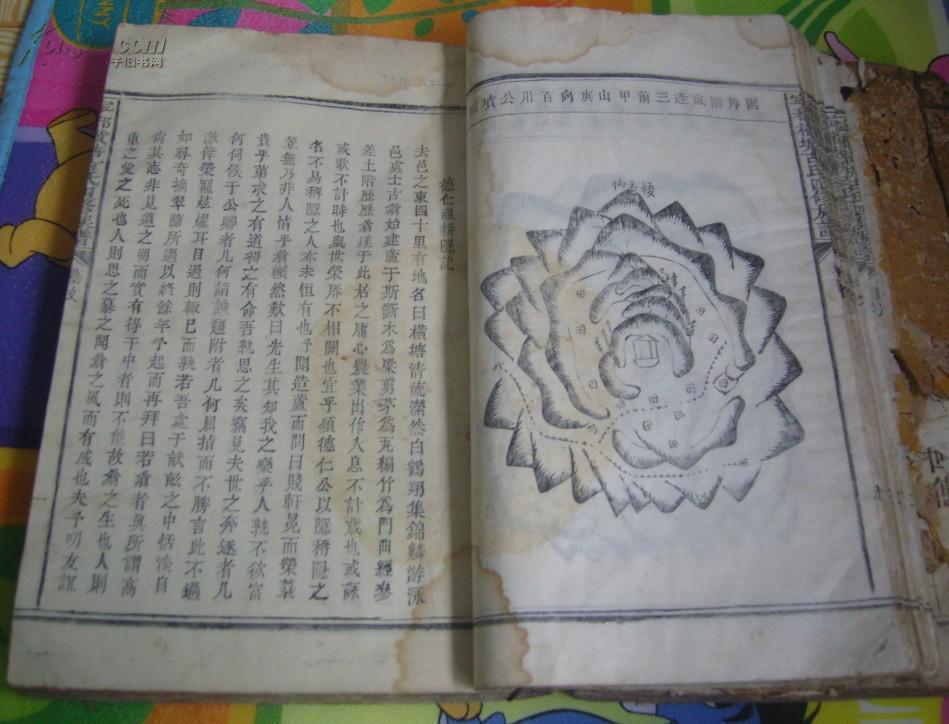 去邑之東四十里有地名曰橫塘清流瀠然白鶴翔集錦鱗游泳
德仁祖耕隱記
邑處士古翁始建廬于斯斲木為梁剪茅為瓦楊竹為門曲經參
差土階歷歷翁廷于此居之庸心農業出作入息不計歲也或蘇
或歌不計時也與世榮辱不相關也宜乎顕德仁公以隱稱隱之
名不易稱隱之人亦未恒有也予閒造廬而問曰賤軒冕而榮蓑
笠無乃非人情乎翁囅然歎曰先生其知我之樂乎人孰不欲富
貴乎第求之有道得之有命吾孰思之矣竊見夫世之奔逐者几
何伺候于公卿者几何諂諛趨附者几何屈指而不勝言此不過
徼倖榮寵炫耀耳目過則輒已而孰若吾處于献畝之中恬淡自
如尋奇摘翠薖所遇以終餘年予起而再拜曰若翁者真所謂高
尚其志非見道之明而實有得于中者則不能故翁之生也人則
重之愛之死也人則思之慕之聞翁之風而有感也夫予明友誼
三前甲山庚向百川公墳圖
接玉仙